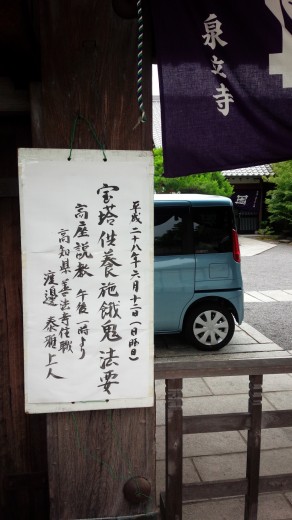 平成二十八年六月十二日(日曜日)
宝塔供養施餓鬼法要・
高座説教 午後一時より
高知県善法寺住職
渡邉泰雅上人
泉立寺